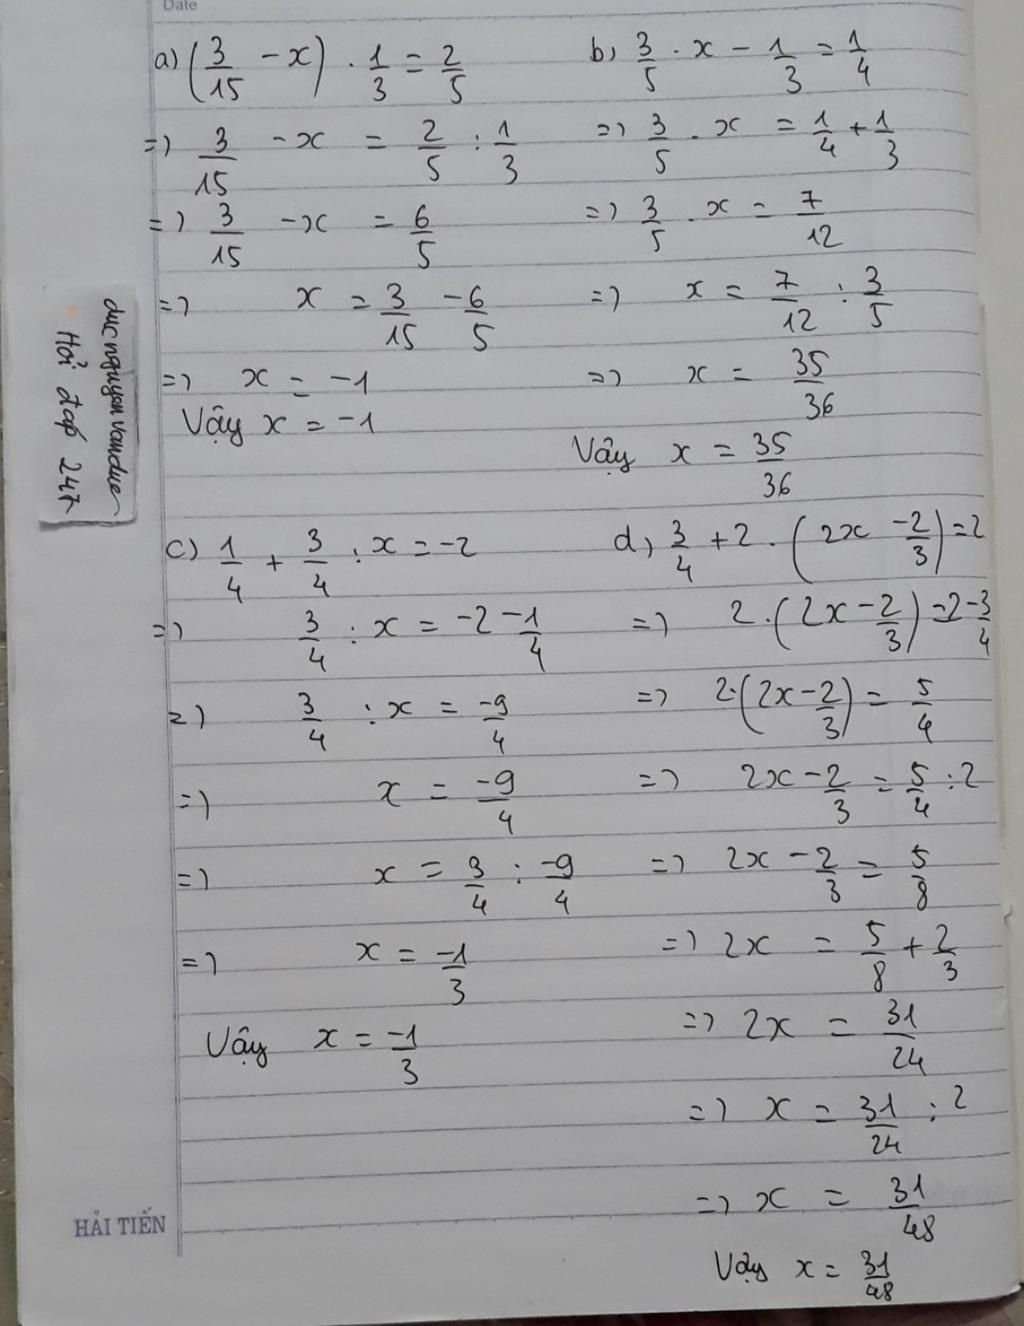 Date
a) (3/15 - x) . 1/3 = 2/5
=) 3/15 - x = 2/5 : 1/3
=) 3/15 - x = 6/5
=) x = 3/15 - 6/5
=) x = -1
Vậy x = -1
b) 3/5 . x - 1/3 = 1/4
=) 3/5 . x = 1/4 + 1/3
=) 3/5 . x = 7/12
=) x = 7/12 : 3/5
=) x = 35/36
Vậy x = 35/36
duc nguyen vanduc
Hỏi đáp 247
c) 1/4 + 3/4 : x = -2
=) 3/4 : x = -2 - 1/4
=) 3/4 : x = -9/4
=) x = -9/4
=) x = 3/4 : -9/4
=) x = -1/3
Vậy x = -1/3
d) 3/4 + 2 . (2x - 2/3) = 2
=) 2 . (2x - 2/3) = 2 - 3/4
=) 2 . (2x - 2/3) = 5/4
=) 2x - 2/3 = 5/4 : 2
=) 2x - 2/3 = 5/8
=) 2x = 5/8 + 2/3
=) 2x = 31/24
=) x = 31/24 : 2
=) x = 31/48
Vậy x = 31/48
HẢI TIẾN